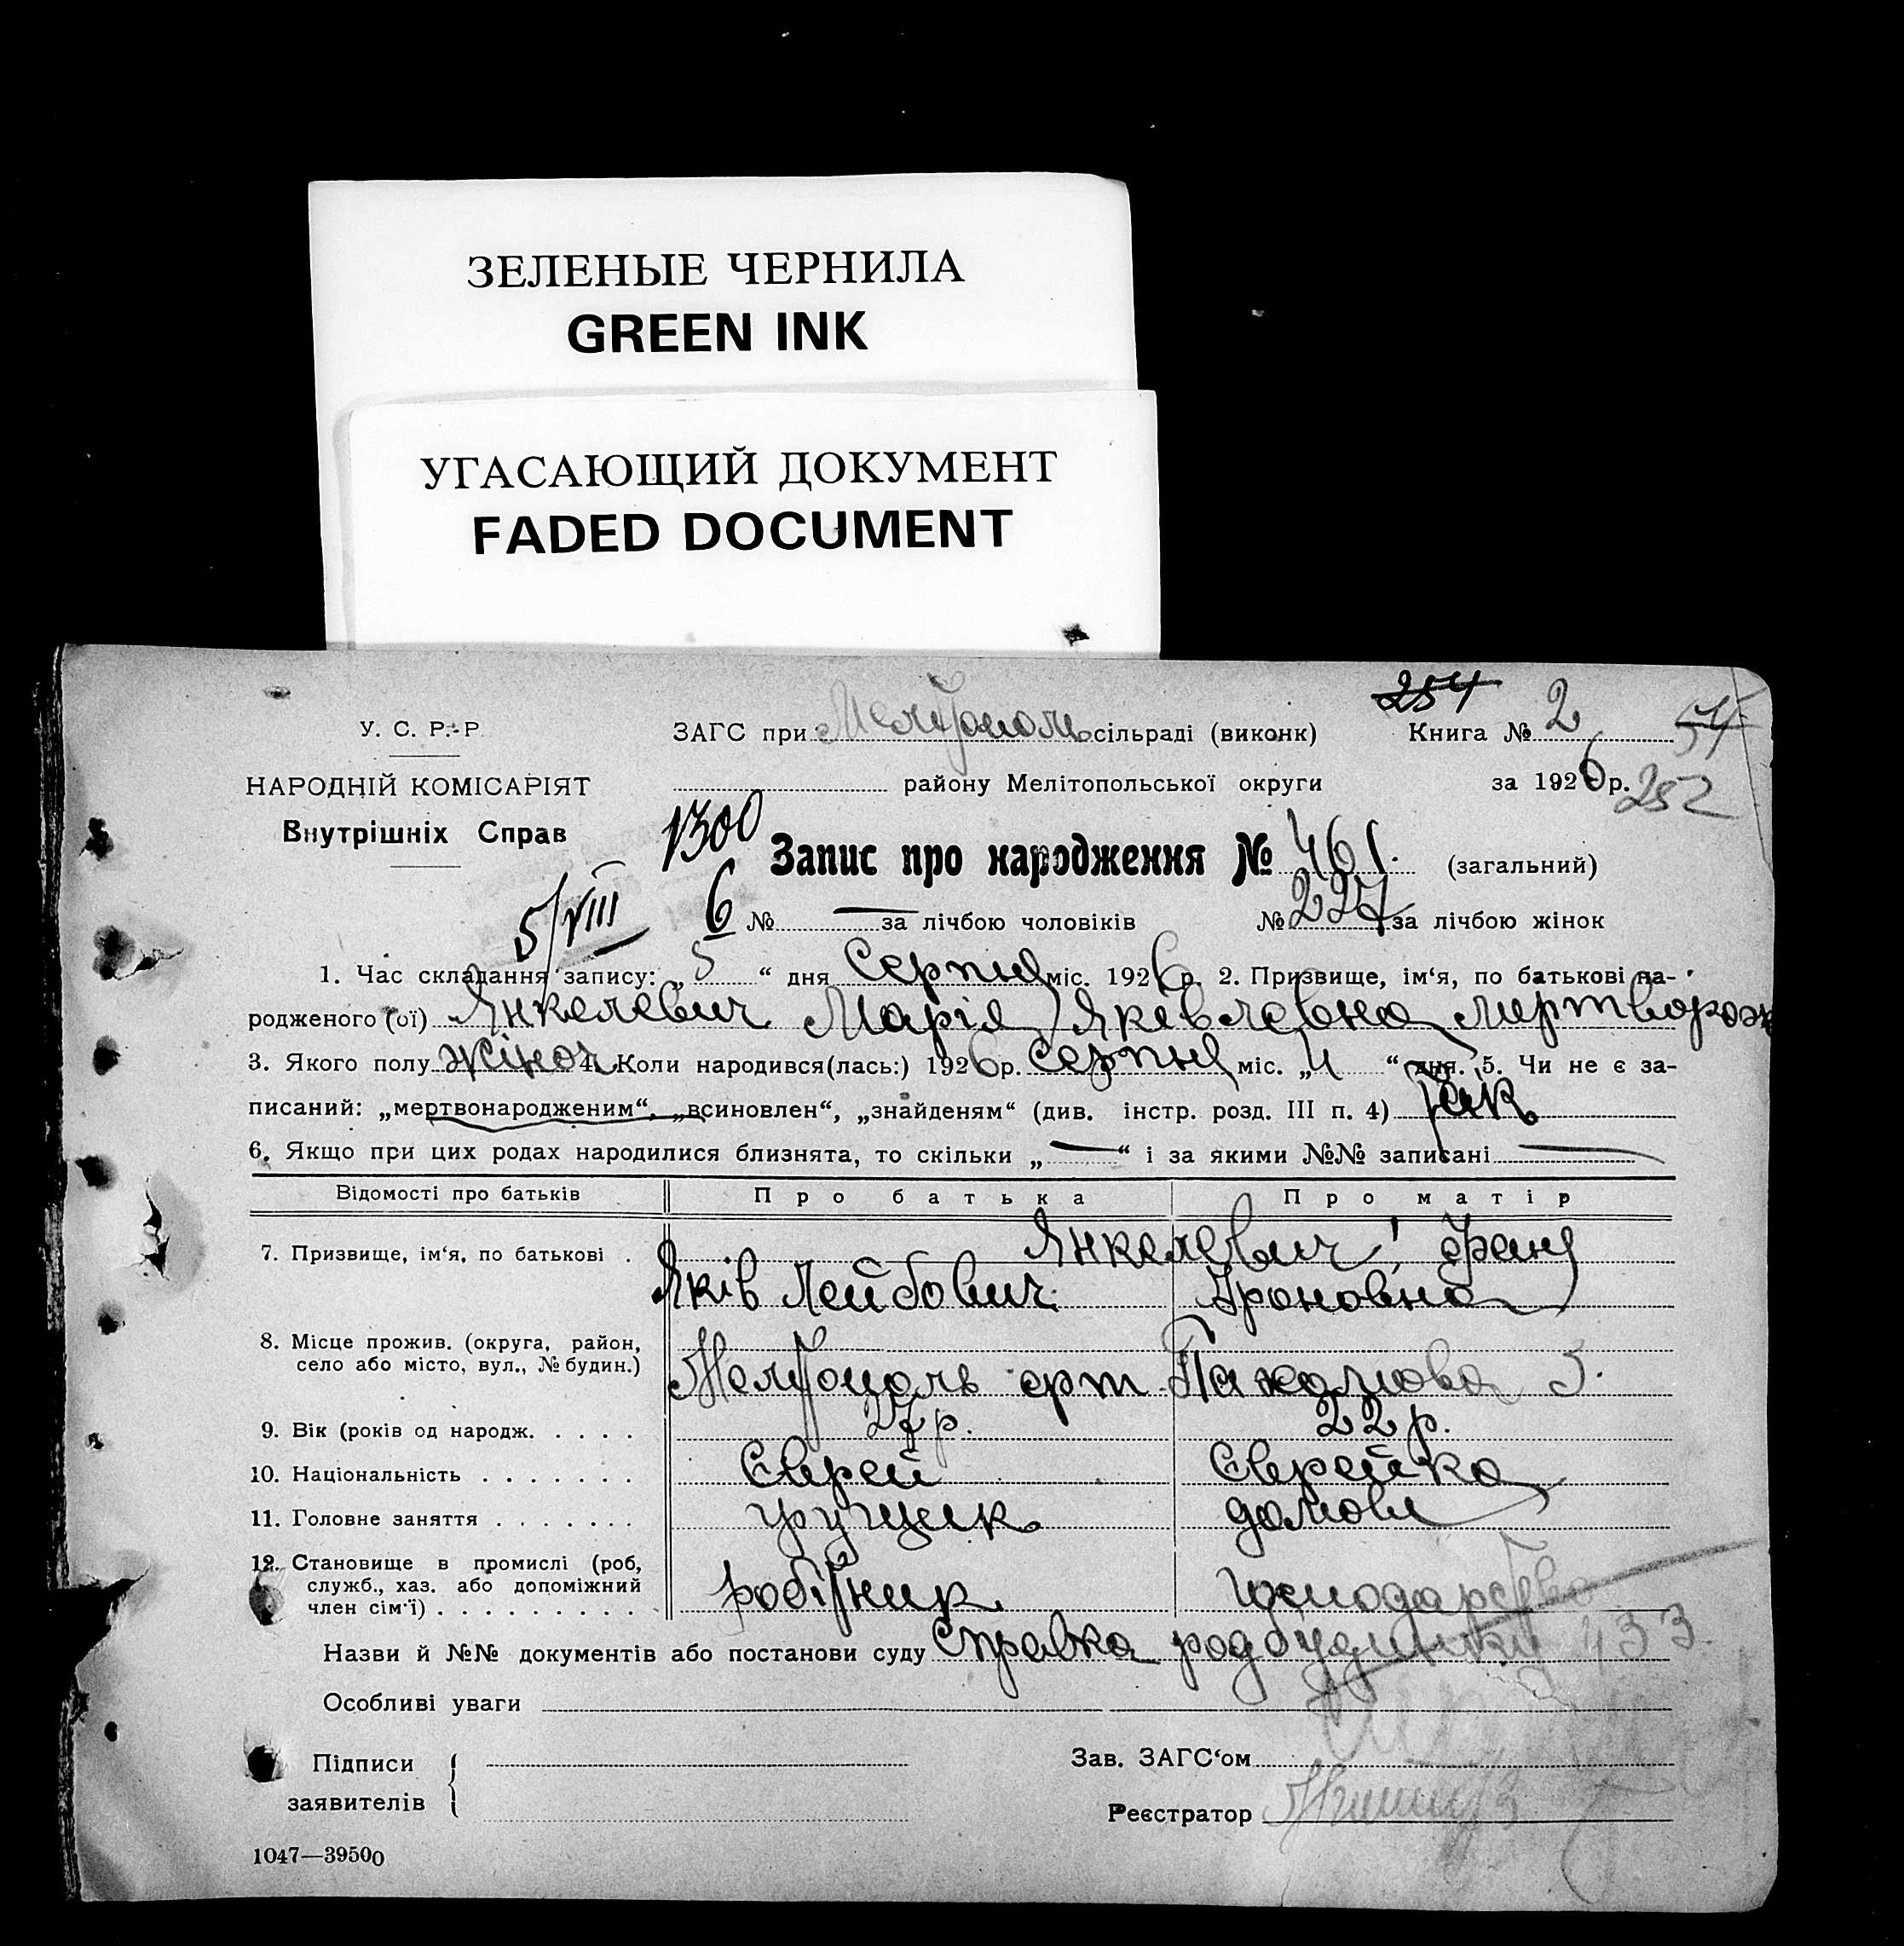 ЗЕЛЕНЫЕ ЧЕРНИЛА
GREEN INK
УГАСАЮЩИЙ ДОКУМЕНТ
FADED DOCUMENT
254
У. С. Р.-Р. ЗАГС при Мелітополь сільраді (виконк) Книга № 2 54
НАРОДНІЙ КОМІСАРІЯТ району Мелітопольської округи за 1926 р. 252
Внутрішніх Справ
1300 Запис про народження № 461. (загальний)
5/VIII 6 № — за лічбою чоловіків № 227 за лічбою жінок
1. Час складання запису: „5“ дня Серпня міс. 1926 р. 2. Призвище, ім‘я, по батькові на-
родженого (ої) Янкелевич Марія Яківлевна мертворож
3. Якого полу жіноч 4. Коли народився(лась:) 1926 р. Серпня міс. „4“ дня. 5. Чи не є за-
писаний: „мертвонародженим“, „всиновлен“, „знайденям“ (див. інстр. розд. III п. 4) Так
6. Якщо при цих родах народилися близнята, то скільки „—“ і за якими №№ записані —
Відомості про батьків Про батька Про матір
7. Призвище, ім‘я, по батькові . Янкелевич Феня
Яків Лейбович Ароновна
8. Місце прожив. (округа, район,
село або місто, вул., № будин.) Мелітополь 3.
9. Вік (років од народж. . . . . 27 р. 22 р.
10. Національність . . . . . . . Єврей Єврейка
11. Головне заняття . . . . . . . грущик домове
12. Становище в промислі (роб,
служб., хаз. або допоміжний
член сім‘ї) . . . . . . . . . робітник господарство
Назви й №№ документів або постанови суду Справка родбудинки 433
Особливі уваги
Підписи Зав. ЗАГС‘ом
заявителів Реєстратор
1047—39500